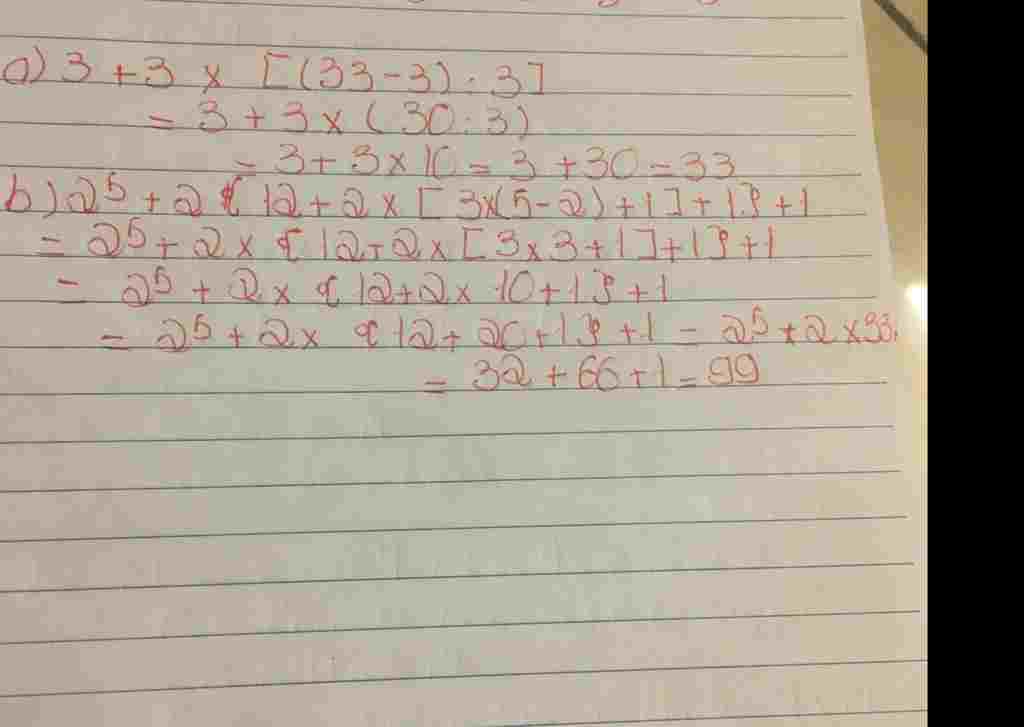 a) 3 + 3 x [(33-3) : 3]
= 3 + 3 x (30 : 3)
= 3 + 3 x 10 = 3 + 30 = 33
b) 2⁵ + 2 { 12 + 2 x [ 3x(5-2) + 1 ] + 1 } + 1
= 2⁵ + 2 x { 12 + 2 x [ 3 x 3 + 1 ] + 1 } + 1
= 2⁵ + 2 x { 12 + 2 x 10 + 1 } + 1
= 2⁵ + 2 x { 12 + 20 + 1 } + 1 = 2⁵ + 2 x 33
= 32 + 66 + 1 = 99